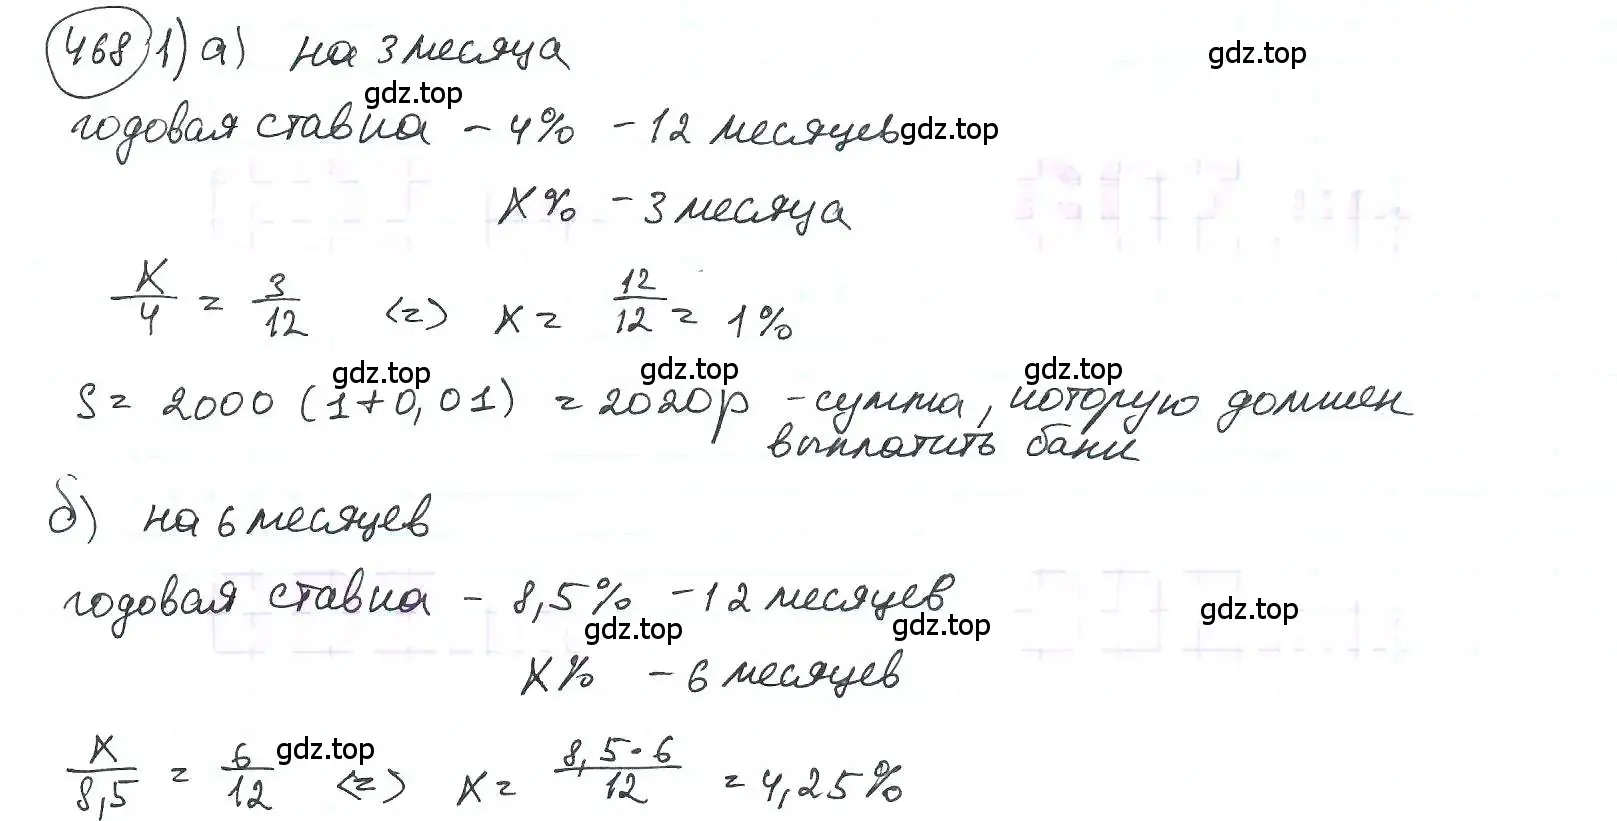 468 1) а) на 3 месяца gdz.top
gdz.top
годовая ставка – 4% – 12 месяцев gdz.top
x% – 3 месяца
x/4 = 3/12 <=> x = 12/12 = 1%
gdz.top gdz.top gdz.top
S = 2000 (1+0,01) = 2020р – сумма, которую должен
выплатить банк
б) на 6 месяцев
годовая ставка – 8,5% – 12 месяцев gdz.top
gdz.top gdz.top
x% – 6 месяцев
x/8,5 = 6/12 gdz.top <=> x = 8,5·6/12 = 4,25%